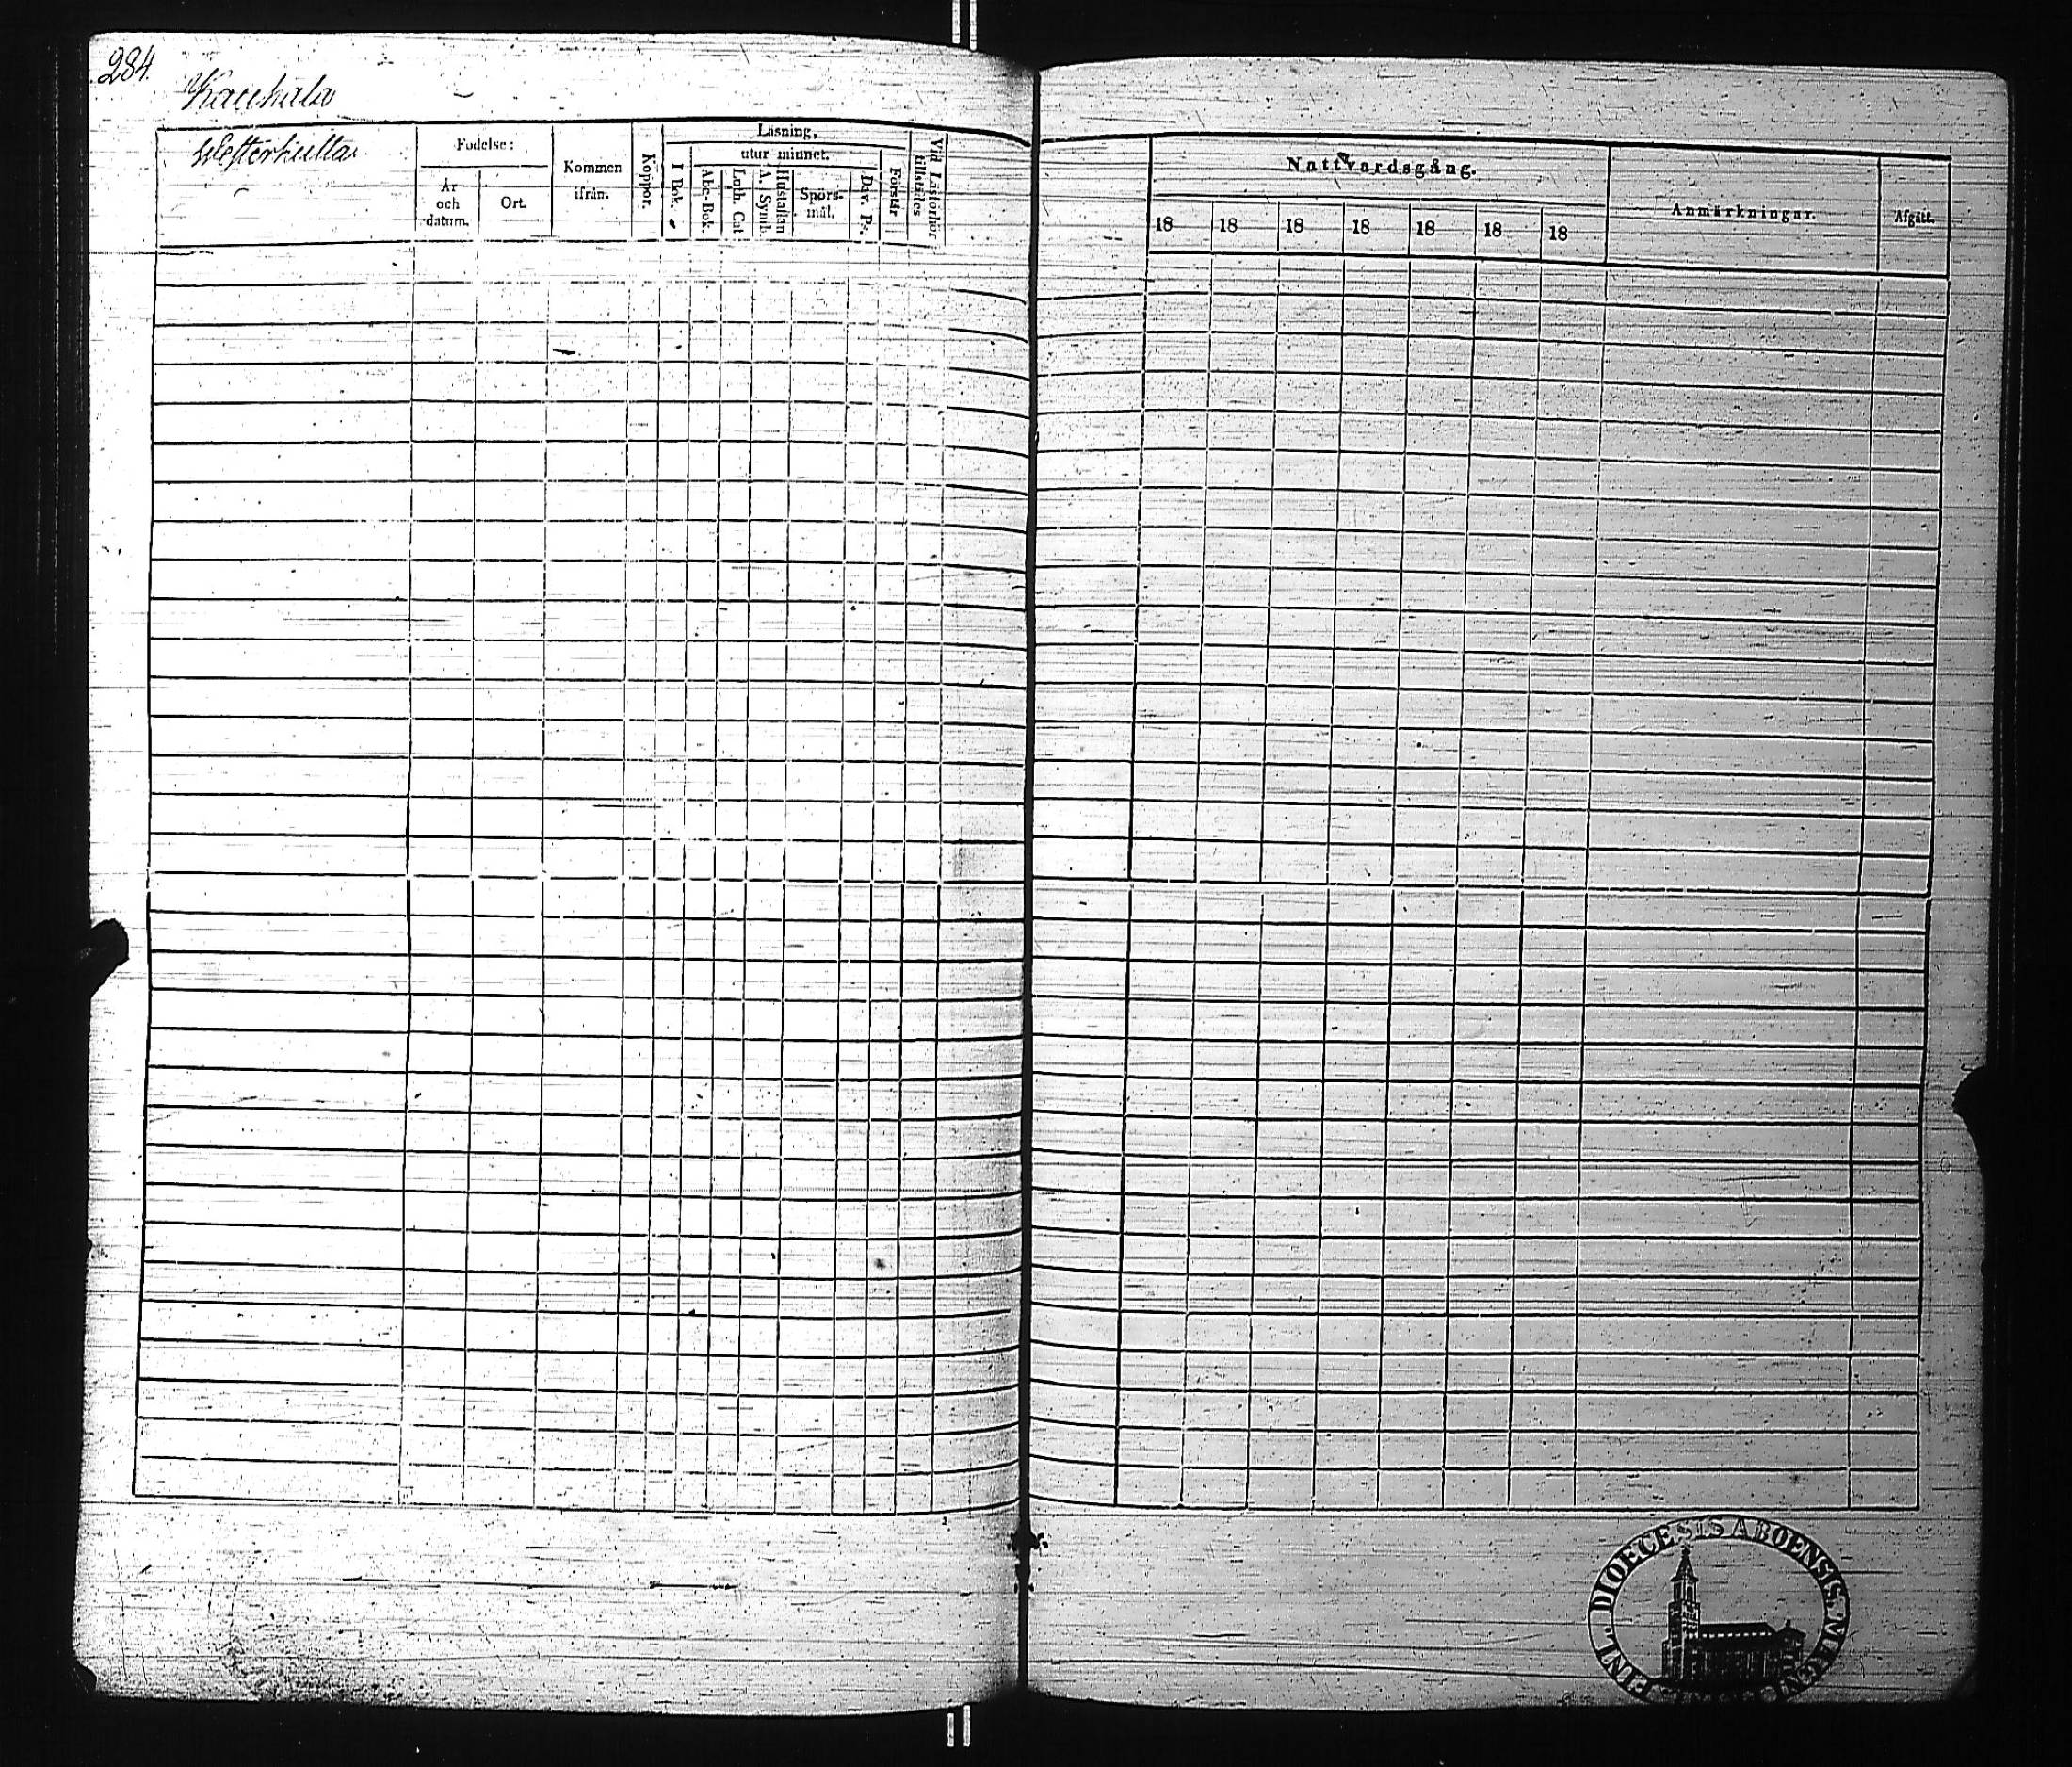 284.
Westerkulla
Födelse:
År
och
datum.
Ort.
Kommen
ifrån.
Koppor.
Läsning,
utur minnet.
I Bok.
Abc-Bok.
Luth. Cat
A. Symb.
Hustaflan
Spörs-
mål.
Dav. Ps.
Förstår
Vid Läsförhör
tillstädes
Nattvardsgång.
18 18 18 18 18 18 18
Anmärkningar.
Afgått.
FINL. DIOECESIS ABOENSIS